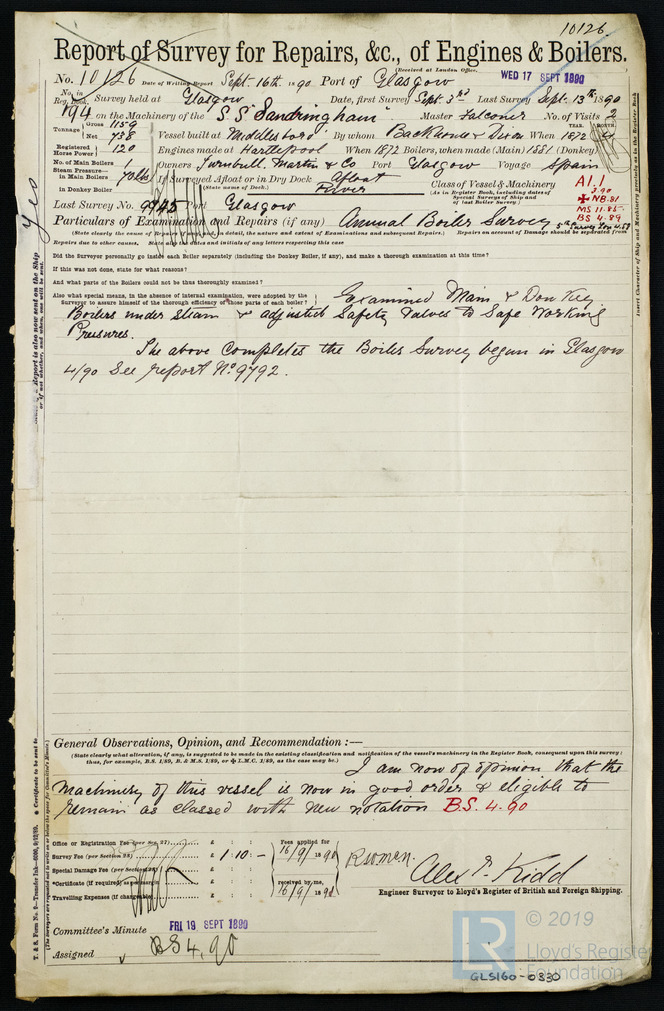 10126
Report of Survey for Repairs, &c., of Engines & Boilers.
(Received at London Office, WED 17 SEPT 1890
No. 10126 Date of Writing Report Sept. 16th 1890 Port of Glasgow
No. in Reg. Book. Survey held at Glasgow Date, first Survey Sept. 3rd Last Survey Sept. 13th 1890
194 on the Machinery of the "S.S. "Sandringham" Master Falconer No. of Visits 2
Tonnage Gross 1159 Net 738
Vessel built at Middlesboro' By whom Backhouse & Dixon When 1872 YEAR. MONTH. 4
Registered Horse Power 120 Engines made at Hartlepool When 1872 Boilers, when made (Main) 1881 (Donkey)
No. of Main Boilers 1 Owners Turnbull, Martin & Co Port Glasgow Voyage Spain
Steam Pressure— in Main Boilers 70 lbs If Surveyed Afloat or in Dry Dock Afloat
(State name of Dock.) River
in Donkey Boiler
Class of Vessel & Machinery
(As in Register Book, including dates of Special Surveys of Ship and of last Boiler Survey.)
A1.1
3.90
✠ NB.81
MS 11.85
BS 4.89
Last Survey No. 9945 Port Glasgow
Particulars of Examination and Repairs (if any) Annual Boiler Survey
(State clearly the cause of Repairs, in detail, the nature and extent of Examinations and subsequent Repairs.) Repairs on account of Damage should be separated from
Repairs due to other causes, State dates and initials of any letters respecting this case
Did the Surveyor personally go inside each Boiler separately (including the Donkey Boiler, if any), and make a thorough examination at this time?
If this was not done, state for what reasons?
And what parts of the Boilers could not be thus thoroughly examined?
Also what special means, in the absence of internal examination, were adopted by the Surveyor to assure himself of the thorough efficiency of those parts of each boiler? Examined Main & Donkey
Boilers under steam & adjusted Safety Valves to Safe Working
Pressures.
The above completes the Boiler Survey begun in Glasgow
4/90 See report No. 9792.
General Observations, Opinion, and Recommendation :—
(State clearly what alteration, if any, is suggested to be made in the existing classification and notification of the vessel's machinery in the Register Book, consequent upon this survey: thus, for example, B.S. 1/89, B. & M.S. 1/89, or ✠ L.M.C. 1/89, as the case may be.)
I am now of opinion that the
Machinery of this vessel is now in good order & eligible to
remain as classed with new notation B.S. 4.90
Office or Registration Fee (per Sec. 27) £ : :
Survey Fee (per Section 28) £ 1 : 10 : -
Special Damage Fee (per Section 28) £ : :
*Certificate (if required) as per margin £ : :
Travelling Expenses (if chargeable) £ : :
Fees applied for 16/9/1890
received by me, 16/9/1890
Alex. Kidd
Engineer Surveyor to Lloyd's Register of British and Foreign Shipping.
Committee's Minute FRI 19 SEPT 1890
Assigned BS 4.90
Yes
Report is also now sent on the Ship
Insert Character of Ship and Machinery precisely as in the Register Book
T. & S. Form No. 9—Transfer Ink—6000, 9/12/89.
* Certificate to be sent to
© 2019
LR
Lloyd's Register
Foundation
GLS160-0330